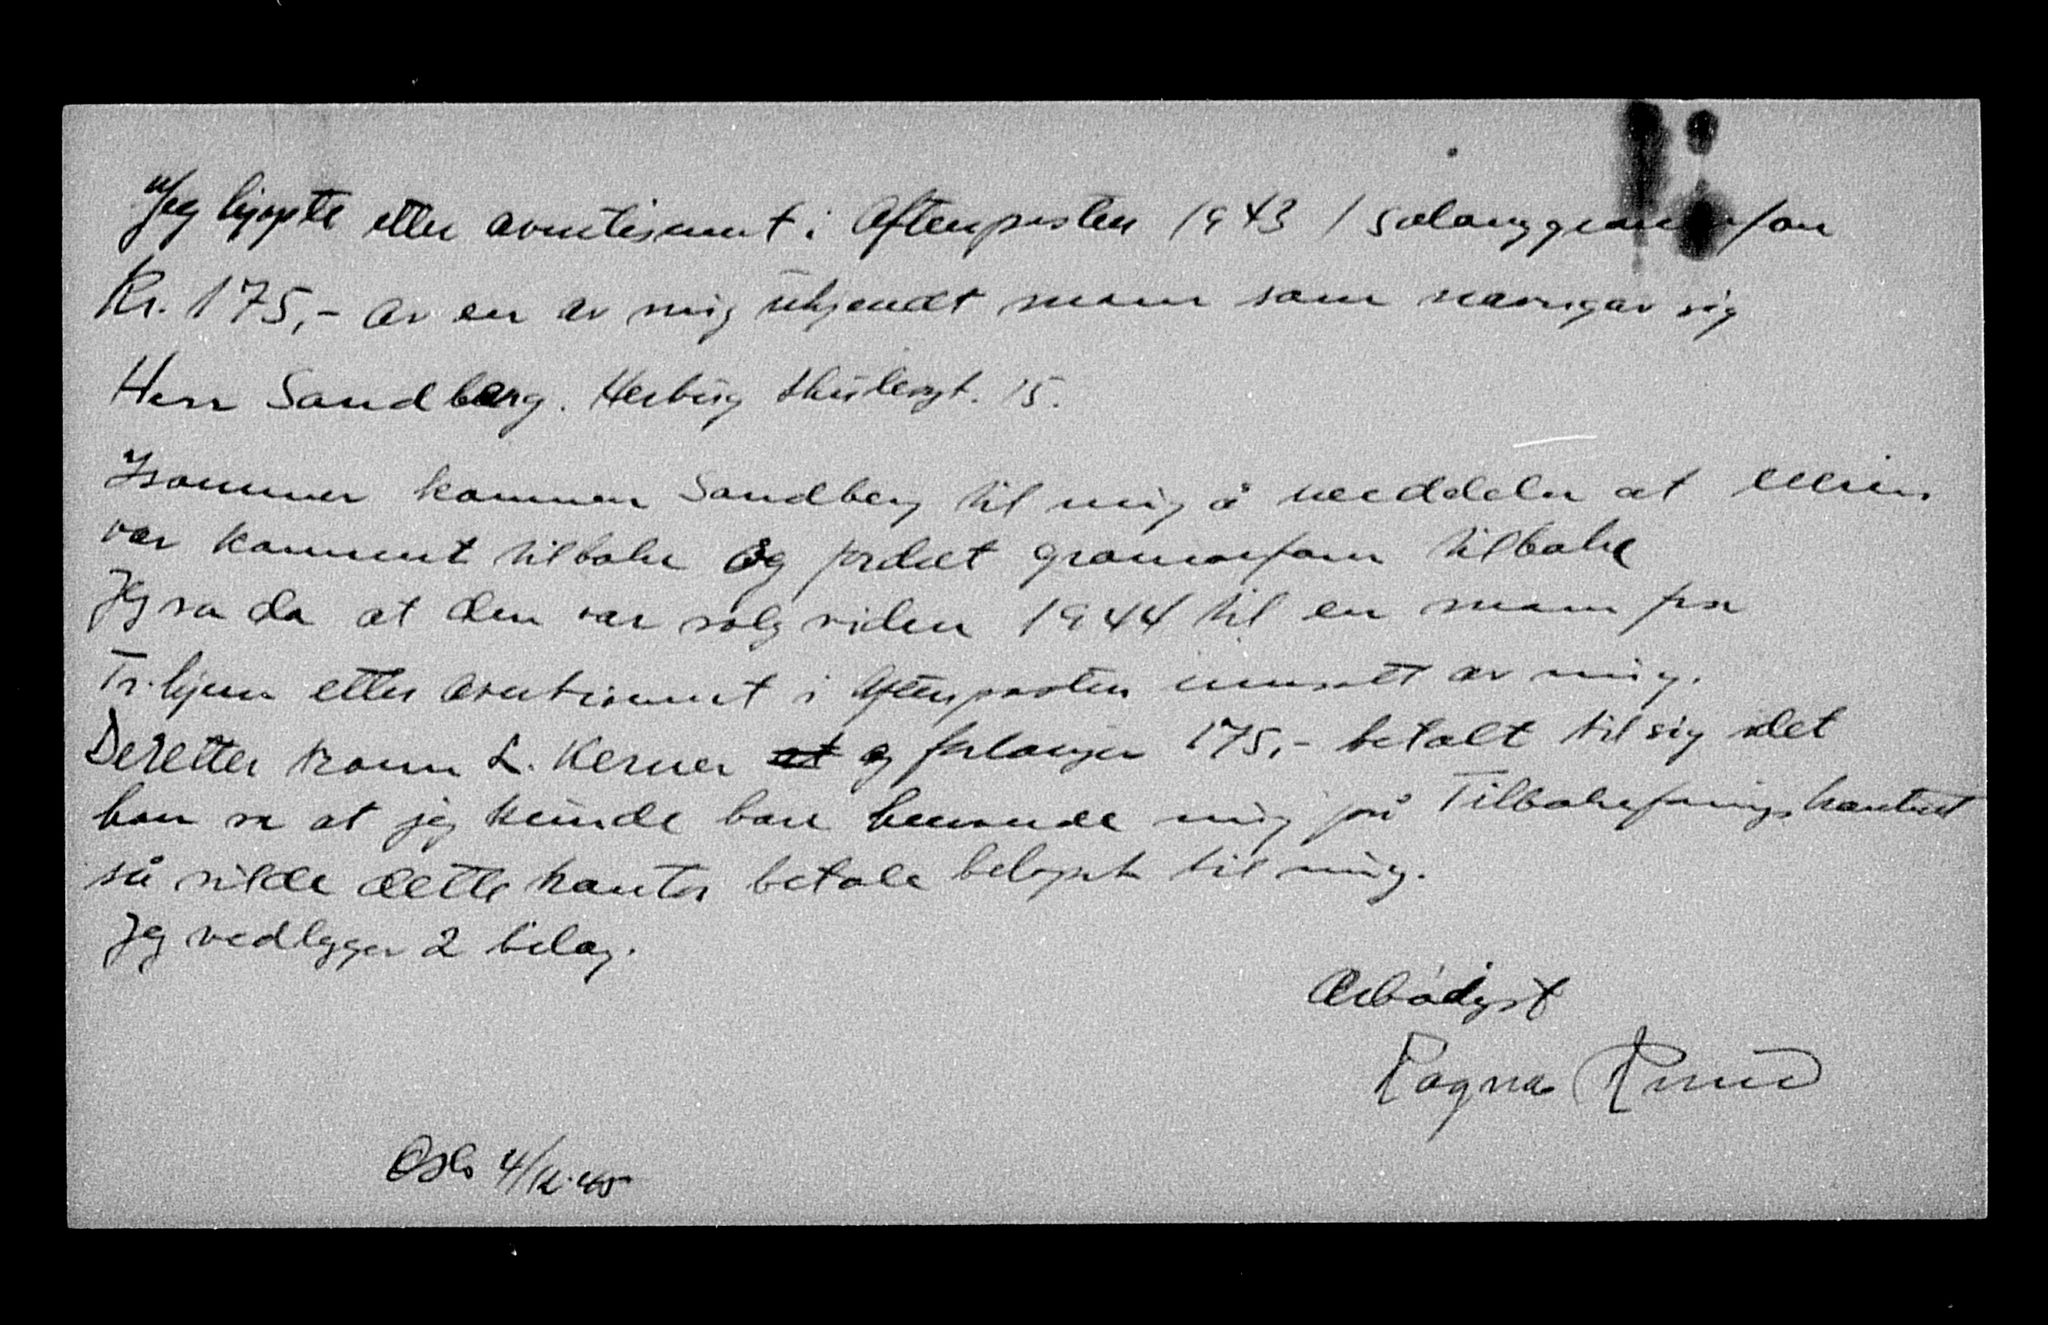 Jeg kjøpte etter avertisemt. i Aftenposten 1943 1 salonggramofon
Kr. 175,- av en av mig ukjendt mann som navngav sig
Herr Sandberg. Herbing 15.
Isommer kommer Sandberg til mig å meddeler at
var kommet tilbake og fordret gramofon tilbake
Jeg sa da at den var solg viden 1944 til en mann fra
Tr.hjem etter avertisemt i Aftenposten innsatt av mig.
Deretter kom L. Kerner og forlanger 175,- betalt til sig idet
han sa at jeg kunde bare henvende mig på Tilbakeføringskontoret
så vilde dette kontor betale beløpet til mig.
Jeg vedlegger 2 bilag.
Ærbødigst
Ragna Ruud
Oslo 4/12.45